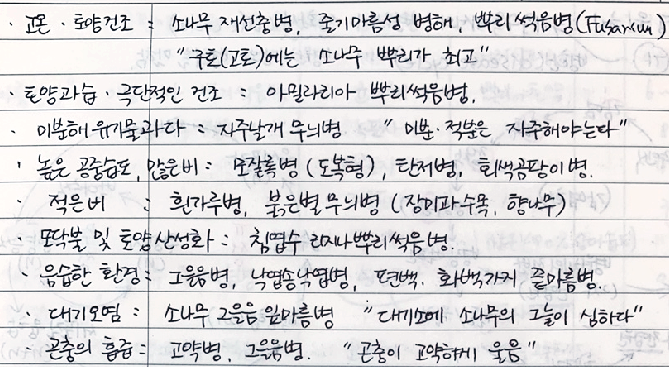 · 고온·토양건조 : 소나무 재선충병, 줄기마름성 병해, 뿌리썩음병(Fusarium)
"구토(고토)에는 소나무 뿌리가 최고"
· 토양과습·극단적인 건조 : 아밀라리아 뿌리썩음병.
· 미분해유기물과다 : 자주날개무늬병 "미분·적분은 자주해야는다"
· 높은 공중습도, 많은비 : 모잘록병(도복형), 탄저병, 회색곰팡이병.
· 적은비 : 흰가루병, 붉은별무늬병 (장미과수목, 향나무)
· 모닥불 및 토양산성화 : 침엽수 리지나뿌리썩음병.
· 음습한 환경 : 그을음병, 낙엽송낙엽병, 편백·화백가지 줄마름병.
· 대기오염 : 소나무 그을음잎마름병 "대기소에 소나무의 그늘이 심하다"
· 곤충의 흡즙 : 고약병, 그을음병. "곤충이 고약하게 울음"